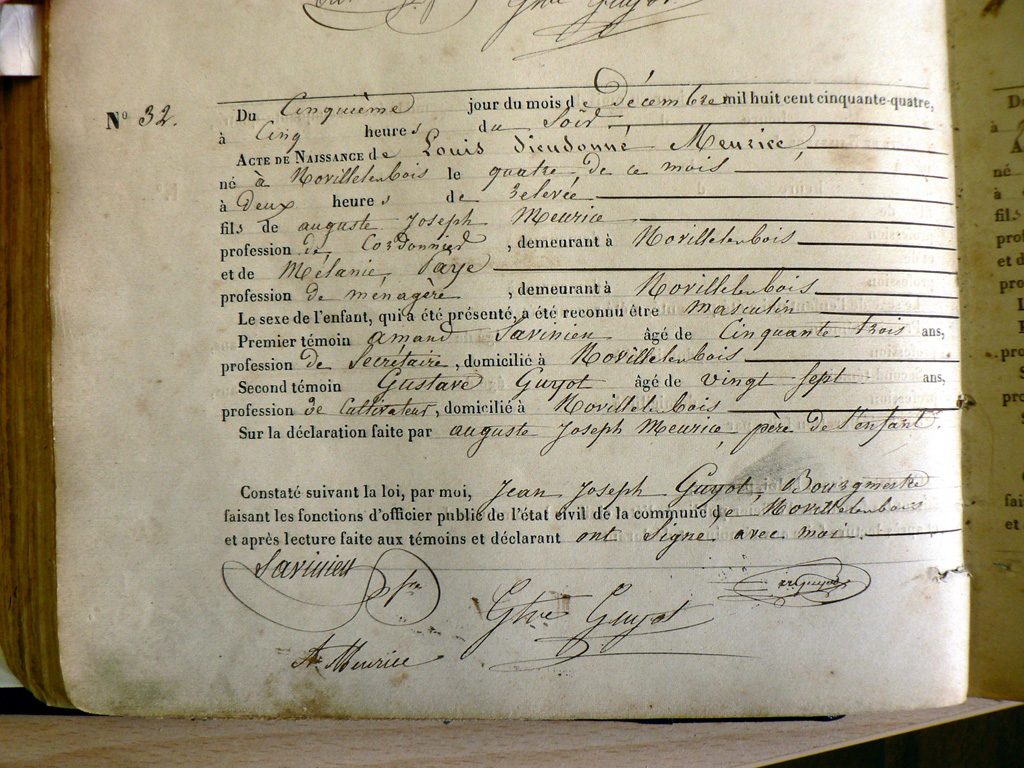 Gtve Guyot
Nº 32.
Du Cinquième jour du mois de Décembre mil huit cent cinquante-quatre,
à Cinq heures du Soir
ACTE DE NAISSANCE de Louis Dieudonné Meurice,
né à Novillelenbois le quatre de ce mois
à deux heures de relevée,
fils de auguste Joseph Meurice
profession de Cordonnier, demeurant à Novillelenbois
et de Mélanie Paye
profession de ménagère, demeurant à Novillelenbois
Le sexe de l'enfant, qui a été présenté, a été reconnu être masculin
Premier témoin amand Savinien âgé de Cinquante trois ans,
profession de Secrétaire, domicilié à Novillelenbois
Second témoin Gustave Guyot âgé de vingt sept ans,
profession de Cultivateur, domicilié à Novillelenbois
Sur la déclaration faite par auguste Joseph Meurice, père de l'enfant.
Constaté suivant la loi, par moi, Jean Joseph Guyot, Bourgmestre
faisant les fonctions d'officier public de l'état civil de la commune de Novillelenbois
et après lecture faite aux témoins et déclarant ont Signé avec moi.
Savinien
Gtve Guyot
Ate Meurice